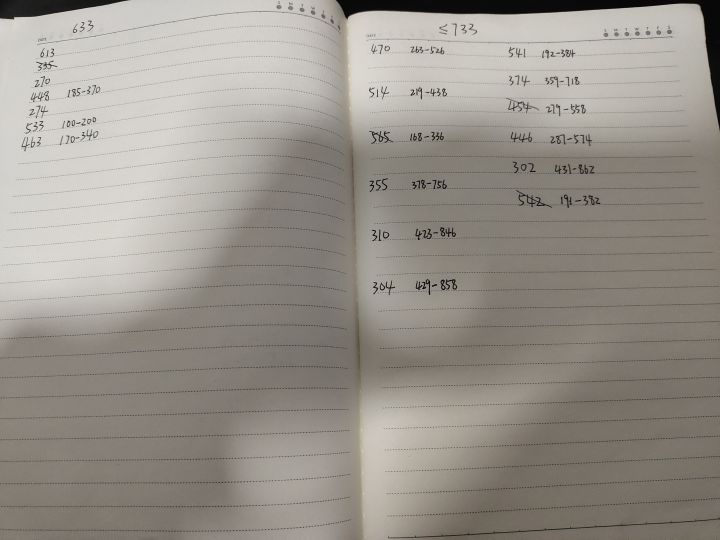 633
DATE
S M T W T F S
613
335
270
448 185-370
274
533 100-200
463 170-340
≤733
DATE
S M T W T F S
470 263-526
514 219-438
565 168-336
355 378-756
310 423-846
304 429-858
541 192-384
374 359-718
454 279-558
446 287-574
302 431-862
542 191-382